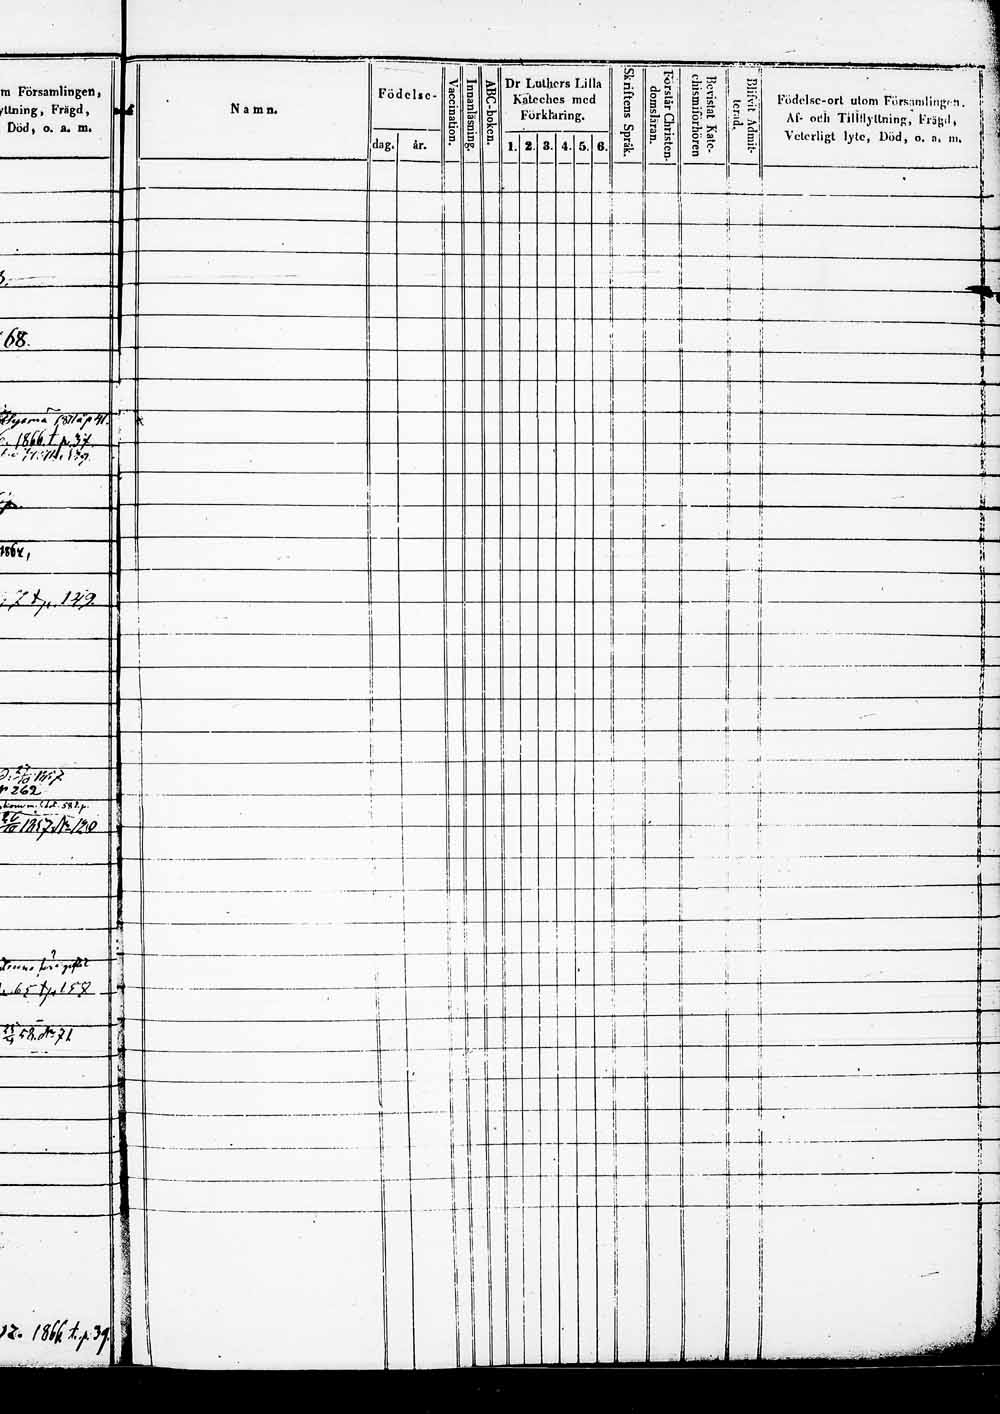 m Församlingen,
yttning, Frägd,
Död, o. a. m.
68.
1866. t p. 37.
1864,
7 t p. 129.
1857
N 262
1857 No 120
65 t p 157
58. No 71
12. 1866 t. p. 39.
Namn.
Födelse-
dag.
år.
Vaccination.
Innanläsning.
ABC-boken.
Dr Luthers Lilla
Kateches med
Förklaring.
1. 2. 3. 4. 5. 6.
Skriftens Språk.
Förstår Christen-
domsläran.
Bevistat Kate-
chismiförhören
Blifvit Admit-
terad.
Födelse-ort utom Församlingen.
Af- och Tillflyttning, Frägd,
Veterligt lyte, Död, o. a. m.